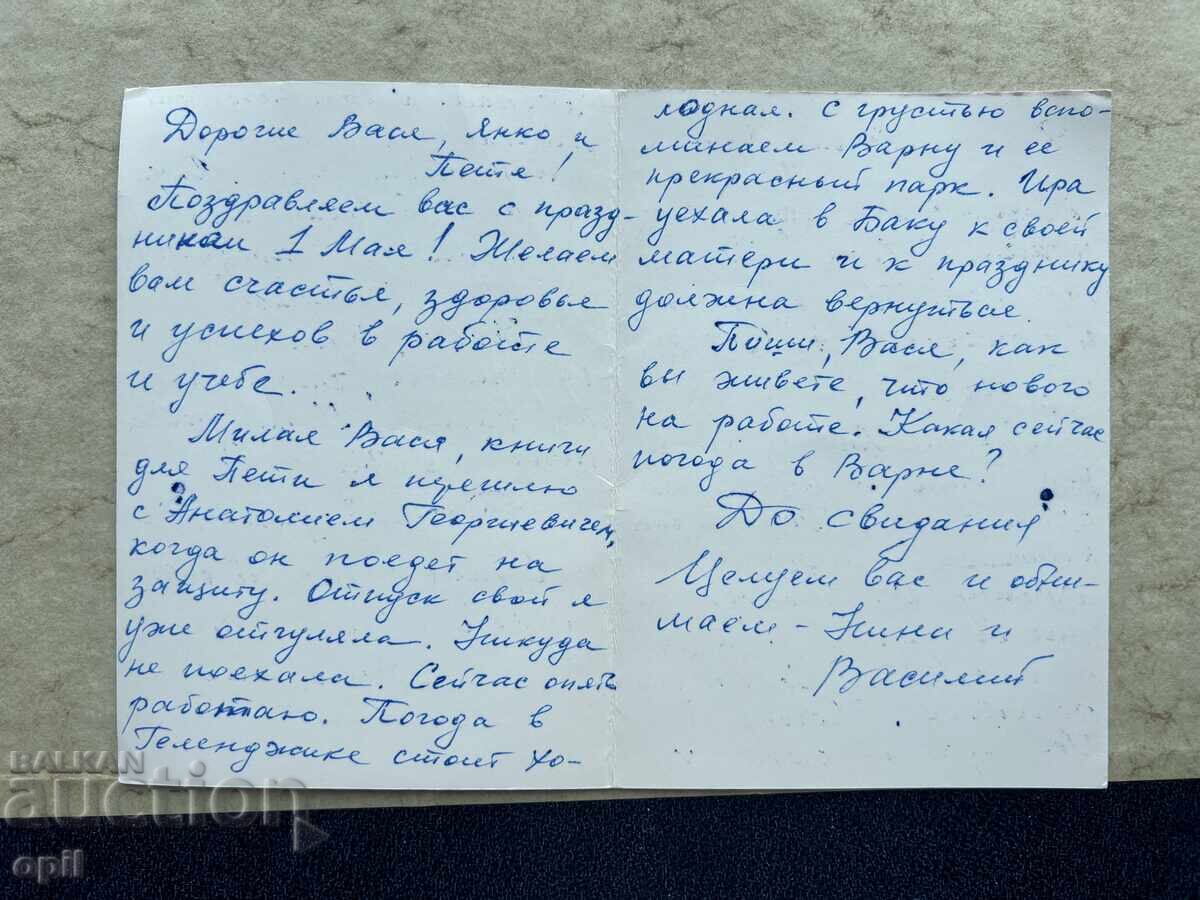 Дорогие Вася, Янко и
Петя!
Поздравляем вас с празд-
ником 1 Мая! Желаем
вам счастья, здоровья
и успехов в работе
и учебе...
Милая Вася, книги
для Пети я перешлю
с Анатолием Георгиевичем,
когда он поедет на
защиту. Отпуск свой я
уже отгуляла. Никуда
не поехала. Сейчас опять
работаю. Погода в
Геленджике стоит хо-
лодная. С грустью вспо-
минаем Варну и ее
прекрасный парк. Ира
уехала в Баку к своей
матери и к празднику
должна вернуться.
Пиши, Вася, как
вы живете, что нового
на работе. Какая сейчас
погода в Варне?
До свидания
Целуем вас и обни-
маем - Нина и
Василий
BALKAN
auction
opil